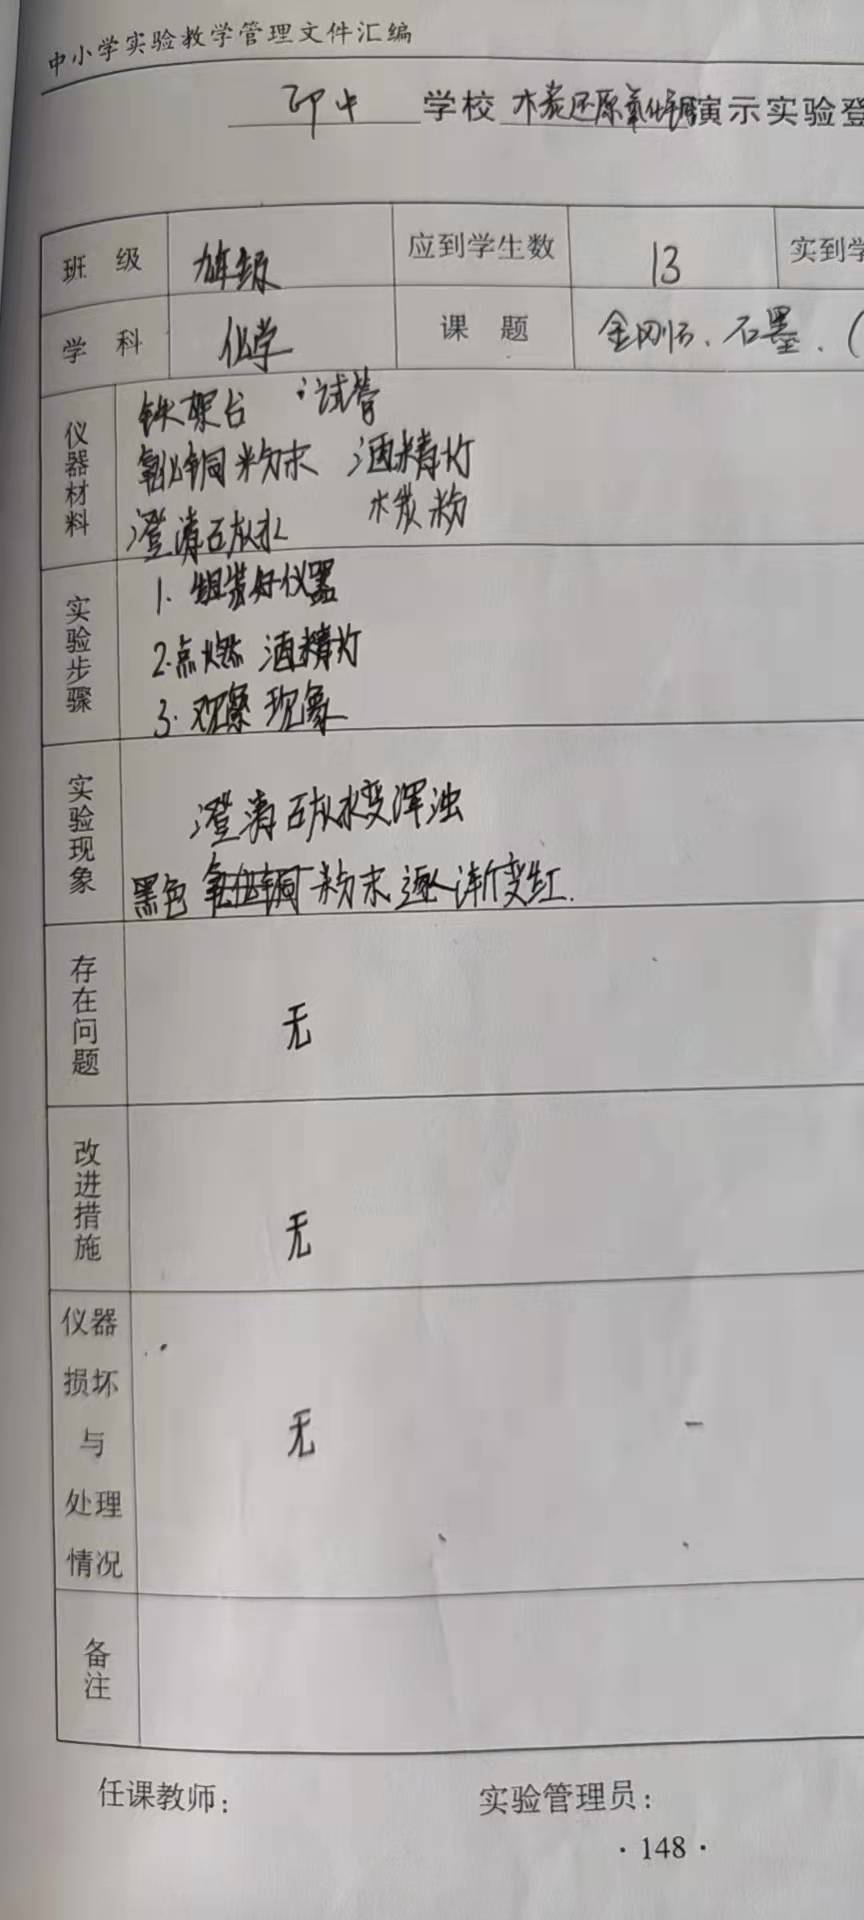 中小学实验教学管理文件汇编
印中 学校 木炭还原氧化铜演示实验登
班 级 九年级 应到学生数 13 实到学
学 科 化学 课 题 金刚石、石墨、(
仪器材料
铁架台 试管
氧化铜粉末 酒精灯
澄清石灰水 木炭粉
实验步骤
1. 组装好仪器
2.点燃 酒精灯
3. 观察 现象
实验现象
澄清石灰水变浑浊
黑色 氧化铜 粉末逐渐变红.
存在问题
无
改进措施
无
仪器
损坏
与
处理
情况
无
备注
任课教师: 实验管理员:
· 148 ·